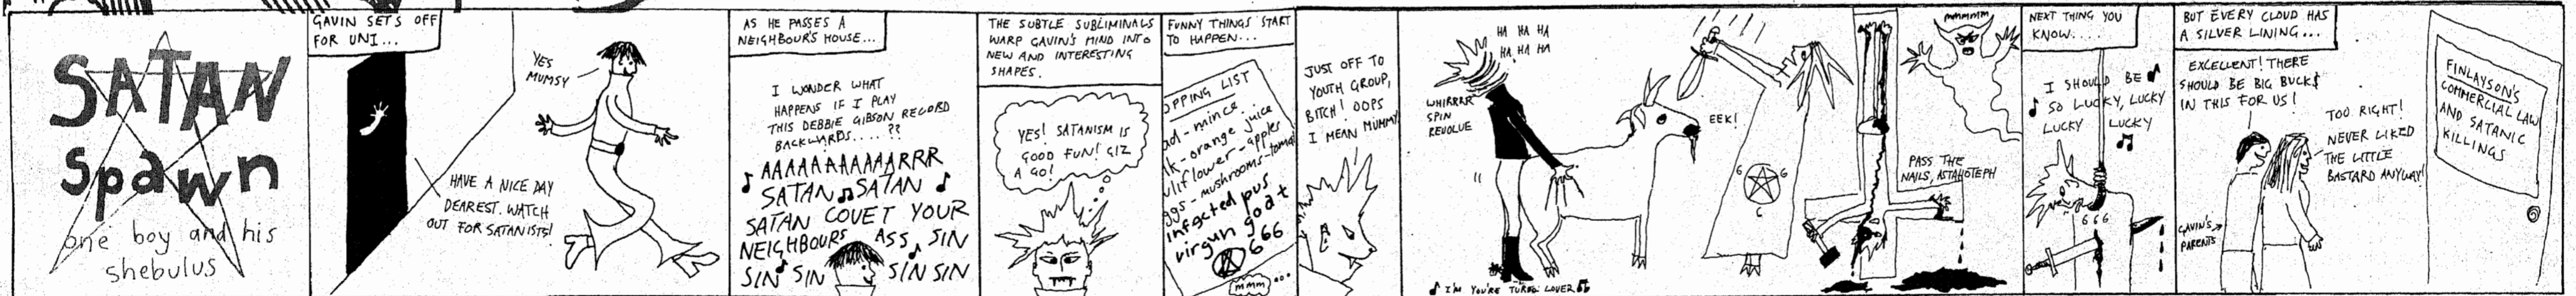 SATAN
Spawn
one boy and his
shebulus
GAVIN SETS OFF
FOR UNI...
YES
MUMSY
HAVE A NICE DAY
DEAREST. WATCH
OUT FOR SATANISTS!
AS HE PASSES A
NEIGHBOUR'S HOUSE...
I WONDER WHAT
HAPPENS IF I PLAY
THIS DEBBIE GIBSON RECORD
BACKWARDS....??
AAAAAAAAAAARRR
SATAN SATAN
SATAN COVET YOUR
NEIGHBOURS ASS SIN
SIN SIN SIN SIN
THE SUBTLE SUBLIMINALS
WARP GAVIN'S MIND INTO
NEW AND INTERESTING
SHAPES.
YES! SATANISM IS
GOOD FUN! GIZ
A GO!
FUNNY THINGS START
TO HAPPEN...
OPPING LIST
ad-mince
lk-orange juice
uliflower-apples
ggs-mushrooms-tomat
infected pus
virgun goat
666
mmm...
JUST OFF TO
YOUTH GROUP,
BITCH! OOPS
I MEAN MUMMY!
HA HA HA
HA HA HA
WHIRRRR
SPIN
REVOLVE
EEK!
♪ I'M YOU'RE TURBO LOVER ♫
6 6
6
mmmmm
PASS THE
NAILS, ASTAHOTEPH
NEXT THING YOU
KNOW....
I SHOULD BE ♪
♪ SO LUCKY, LUCKY
LUCKY LUCKY
♫
666
BUT EVERY CLOUD HAS
A SILVER LINING...
EXCELLENT! THERE
SHOULD BE BIG BUCK$
IN THIS FOR US!
TOO RIGHT!
NEVER LIKED
THE LITTLE
BASTARD ANYWAY!
GAVIN'S
PARENTS
FINLAYSON'S
COMMERCIAL LAW
AND SATANIC
KILLINGS